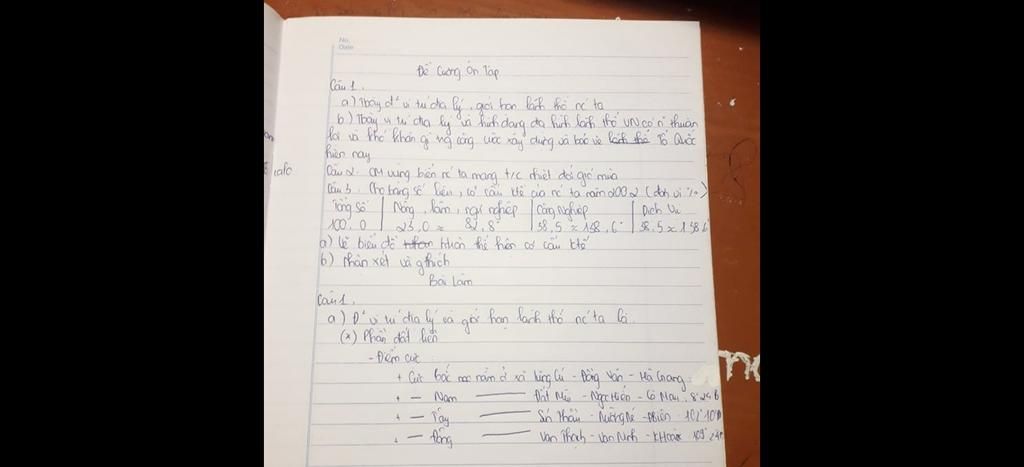 No.
Date
Đề Cương Ôn Tập
Câu 1.
a) Tbày đ² vị trí địa lý, giới hạn lãnh thổ nc ta
b) Tbày vị trí địa lý và hình dạng địa hình lãnh thổ VN có n~ thuận
lợi và khó khăn gì trg công cuộc xây dựng và bảo vệ lãnh thổ Tổ Quốc
hiện nay
Câu 2. CM vùng biển nc ta mang t/c nhiệt đới gió mùa
Câu 3. Cho bảng số liệu, cơ cấu ktế của nc ta năm 2002 (đơn vị %)
Tổng số | Nông, lâm, ngư nghiệp | Công Nghiệp | Dịch Vụ
100,0 23,0 ≈ 82,8° 38,5 ≈ 138,6° 38,5 ≈ 138,6
a) Vẽ biểu đồ tròn thể hiện cơ cấu ktế
b) Nhận xét và gthích
Bài Làm
Câu 1.
a) Đ² vị trí địa lý và giới hạn lãnh thổ nc ta là
(*) Phần đất liền
- Điểm cực
+ Cực bắc nằm ở xã Lũng Cú - Đồng Văn - Hà Giang
+ — Nam — Đất Mũi - Ngọc Hiển - Cà Mau
+ — Tây — Sín Thầu - Mường Nhé - Đbiên - 102°10'
+ — Đông — Vạn Thạnh - Vạn Ninh - KHoà 109°24'
calc